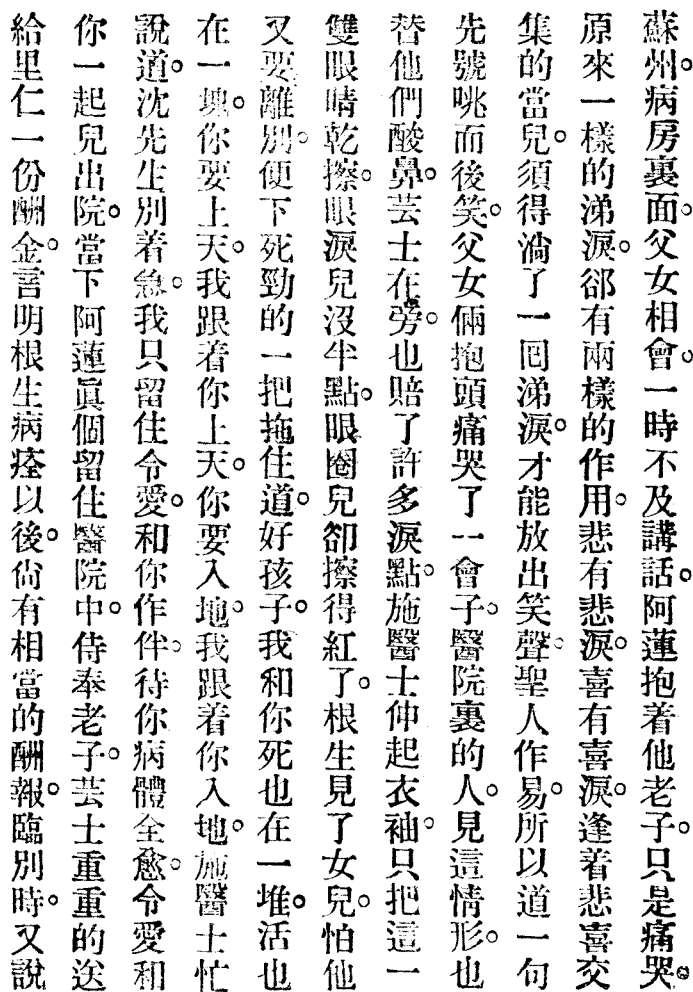 蘇州。病房裏面。父女相會。一時不及講話。阿蓮抱着他老子。只是痛哭。
原來一樣的涕淚。郤有兩樣的作用。悲有悲淚。喜有喜淚。逢着悲喜交
集的當兒。須得淌了一囘涕淚。才能放出笑聲。聖人作易。所以道一句
先號咷而後笑。父女倆抱頭痛哭了一會子。醫院裏的人。見這情形。也
替他們酸鼻。芸士在旁。也賠了許多淚點。施醫士伸起衣袖。只把這一
雙眼睛乾擦。眼淚兒沒半點。眼圈兒卻擦得紅了。根生見了女兒。怕他
又要離別。便下死勁的一把拖住道。好孩子。我和你死也在一堆。活也
在一塊。你要上天。我跟着你上天。你要入地。我跟着你入地。施醫士忙
說道。沈先生別着急。我只留住令愛。和你作伴。待你病體全愈。令愛和
你一起兒出院。當下阿蓮眞個留住醫院中。侍奉老子。芸士重重的送
給里仁一份酬金。言明根生病痊以後。尙有相當的酬報。臨別時。又說